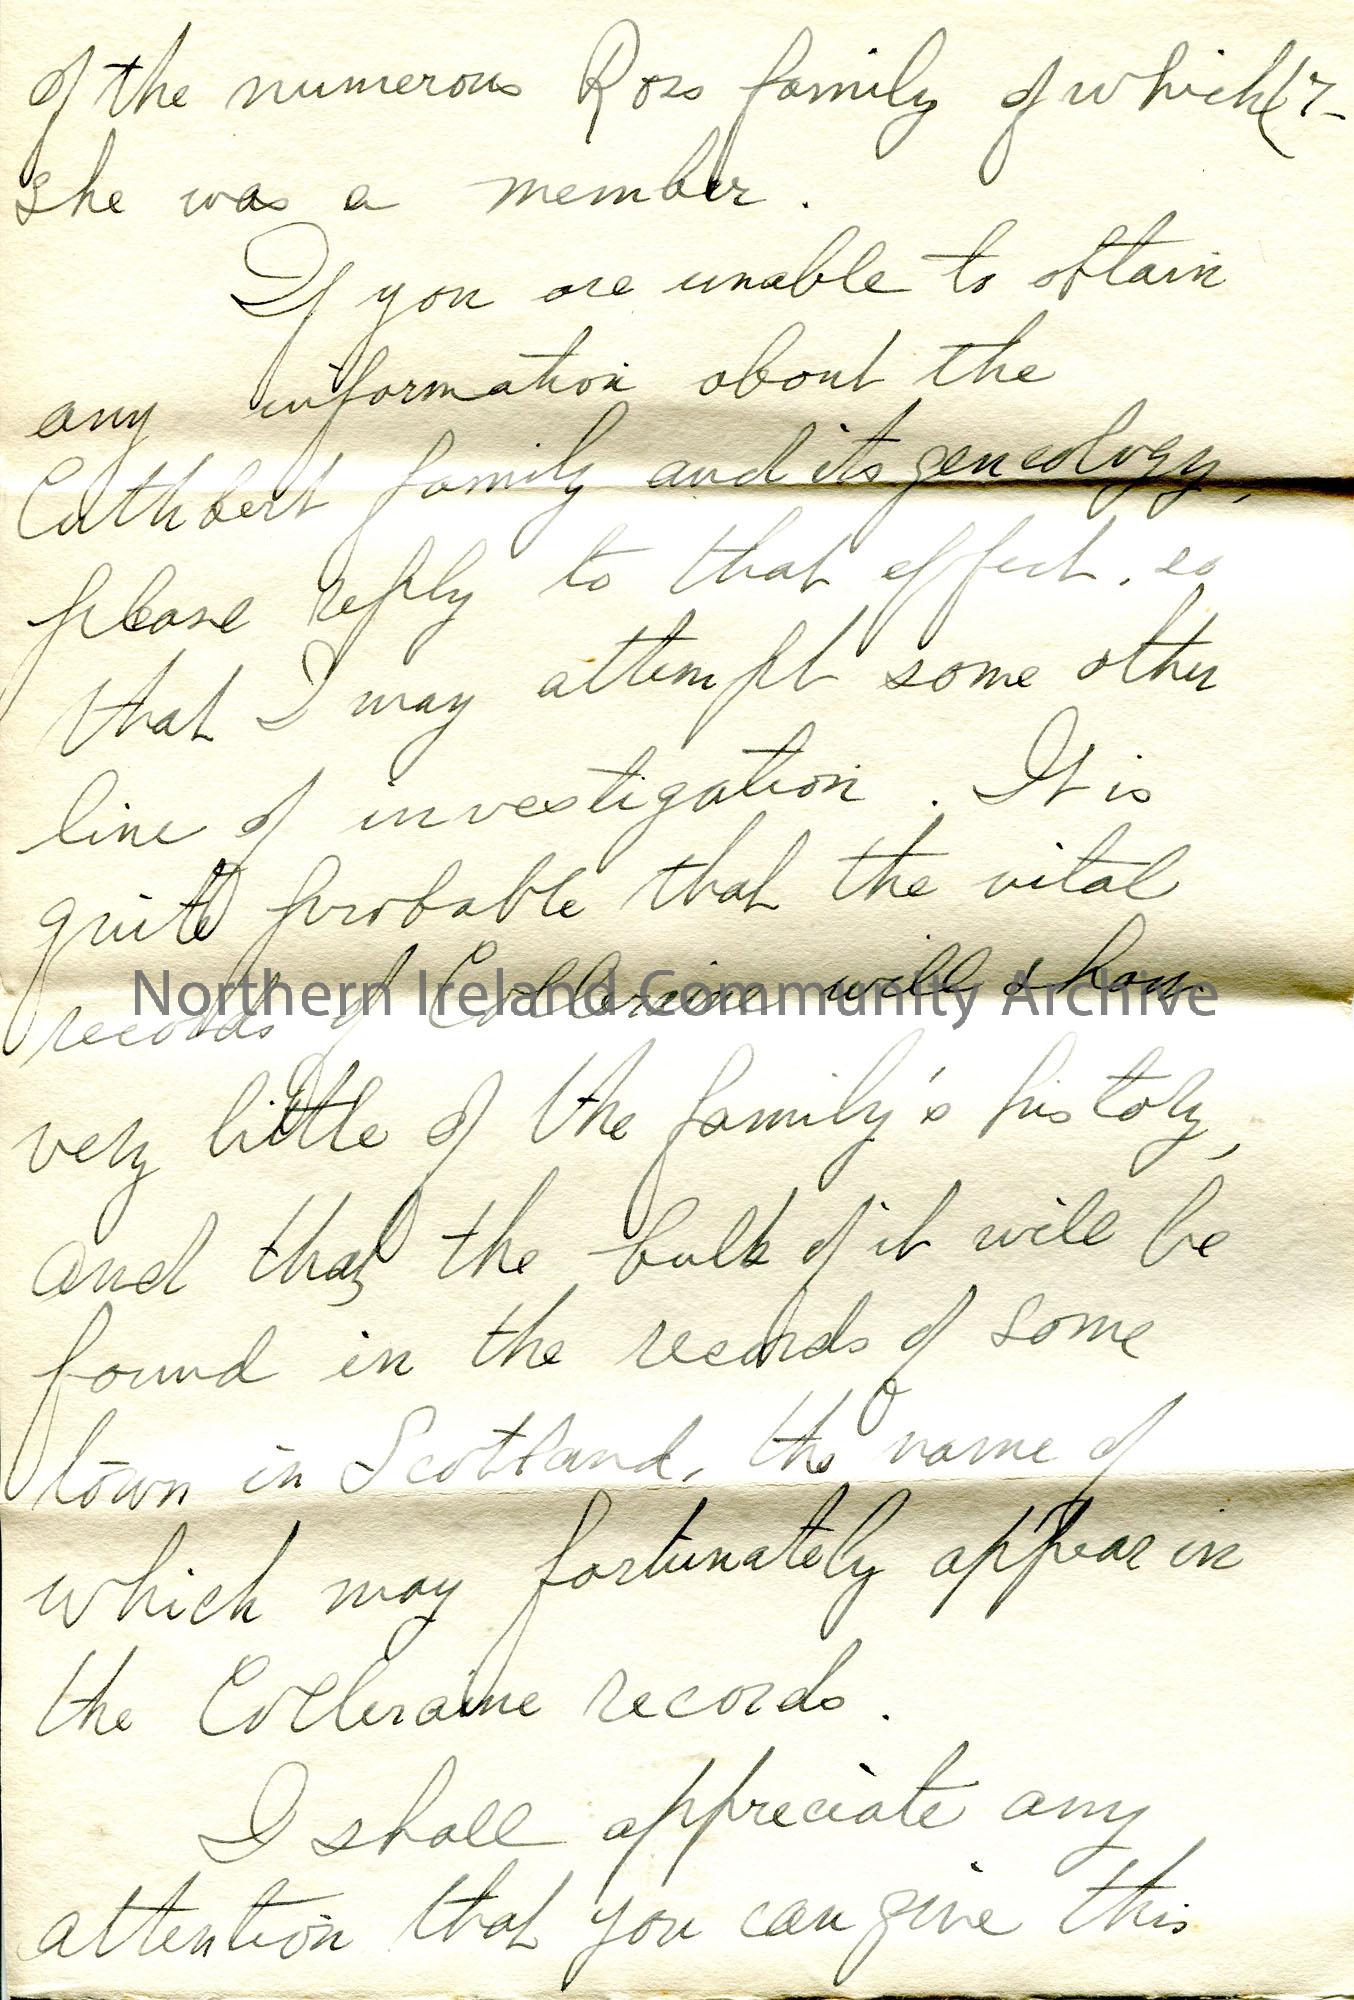 of the numerous Ross family of which (7-
she was a member.
If you are unable to obtain
any information about the
Cuthbert family and its geneology,
please reply to that effect, so
that I may attempt some other
line of investigation. It is
quite probable that the vital
records of Colleraine will show
Northern Ireland Community Archive
very little of the family's history,
and that the bulk of it will be
found in the records of some
town in Scotland, the name of
which may fortunately appear in
the Colleraine records.
I shall appreciate any
attention that you can give this